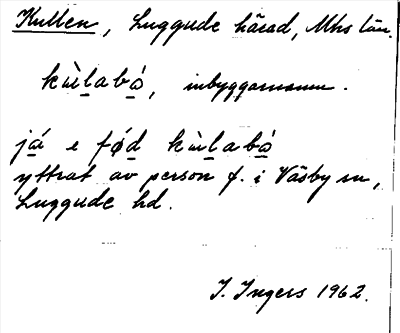 Kullen, Luggude härad, Mhs län.
kùlabó, inbyggarnamn.
já e fød kùlabó
yttrat av person f. i Väsby sn,
Luggude hd.
I. Ingers 1962.